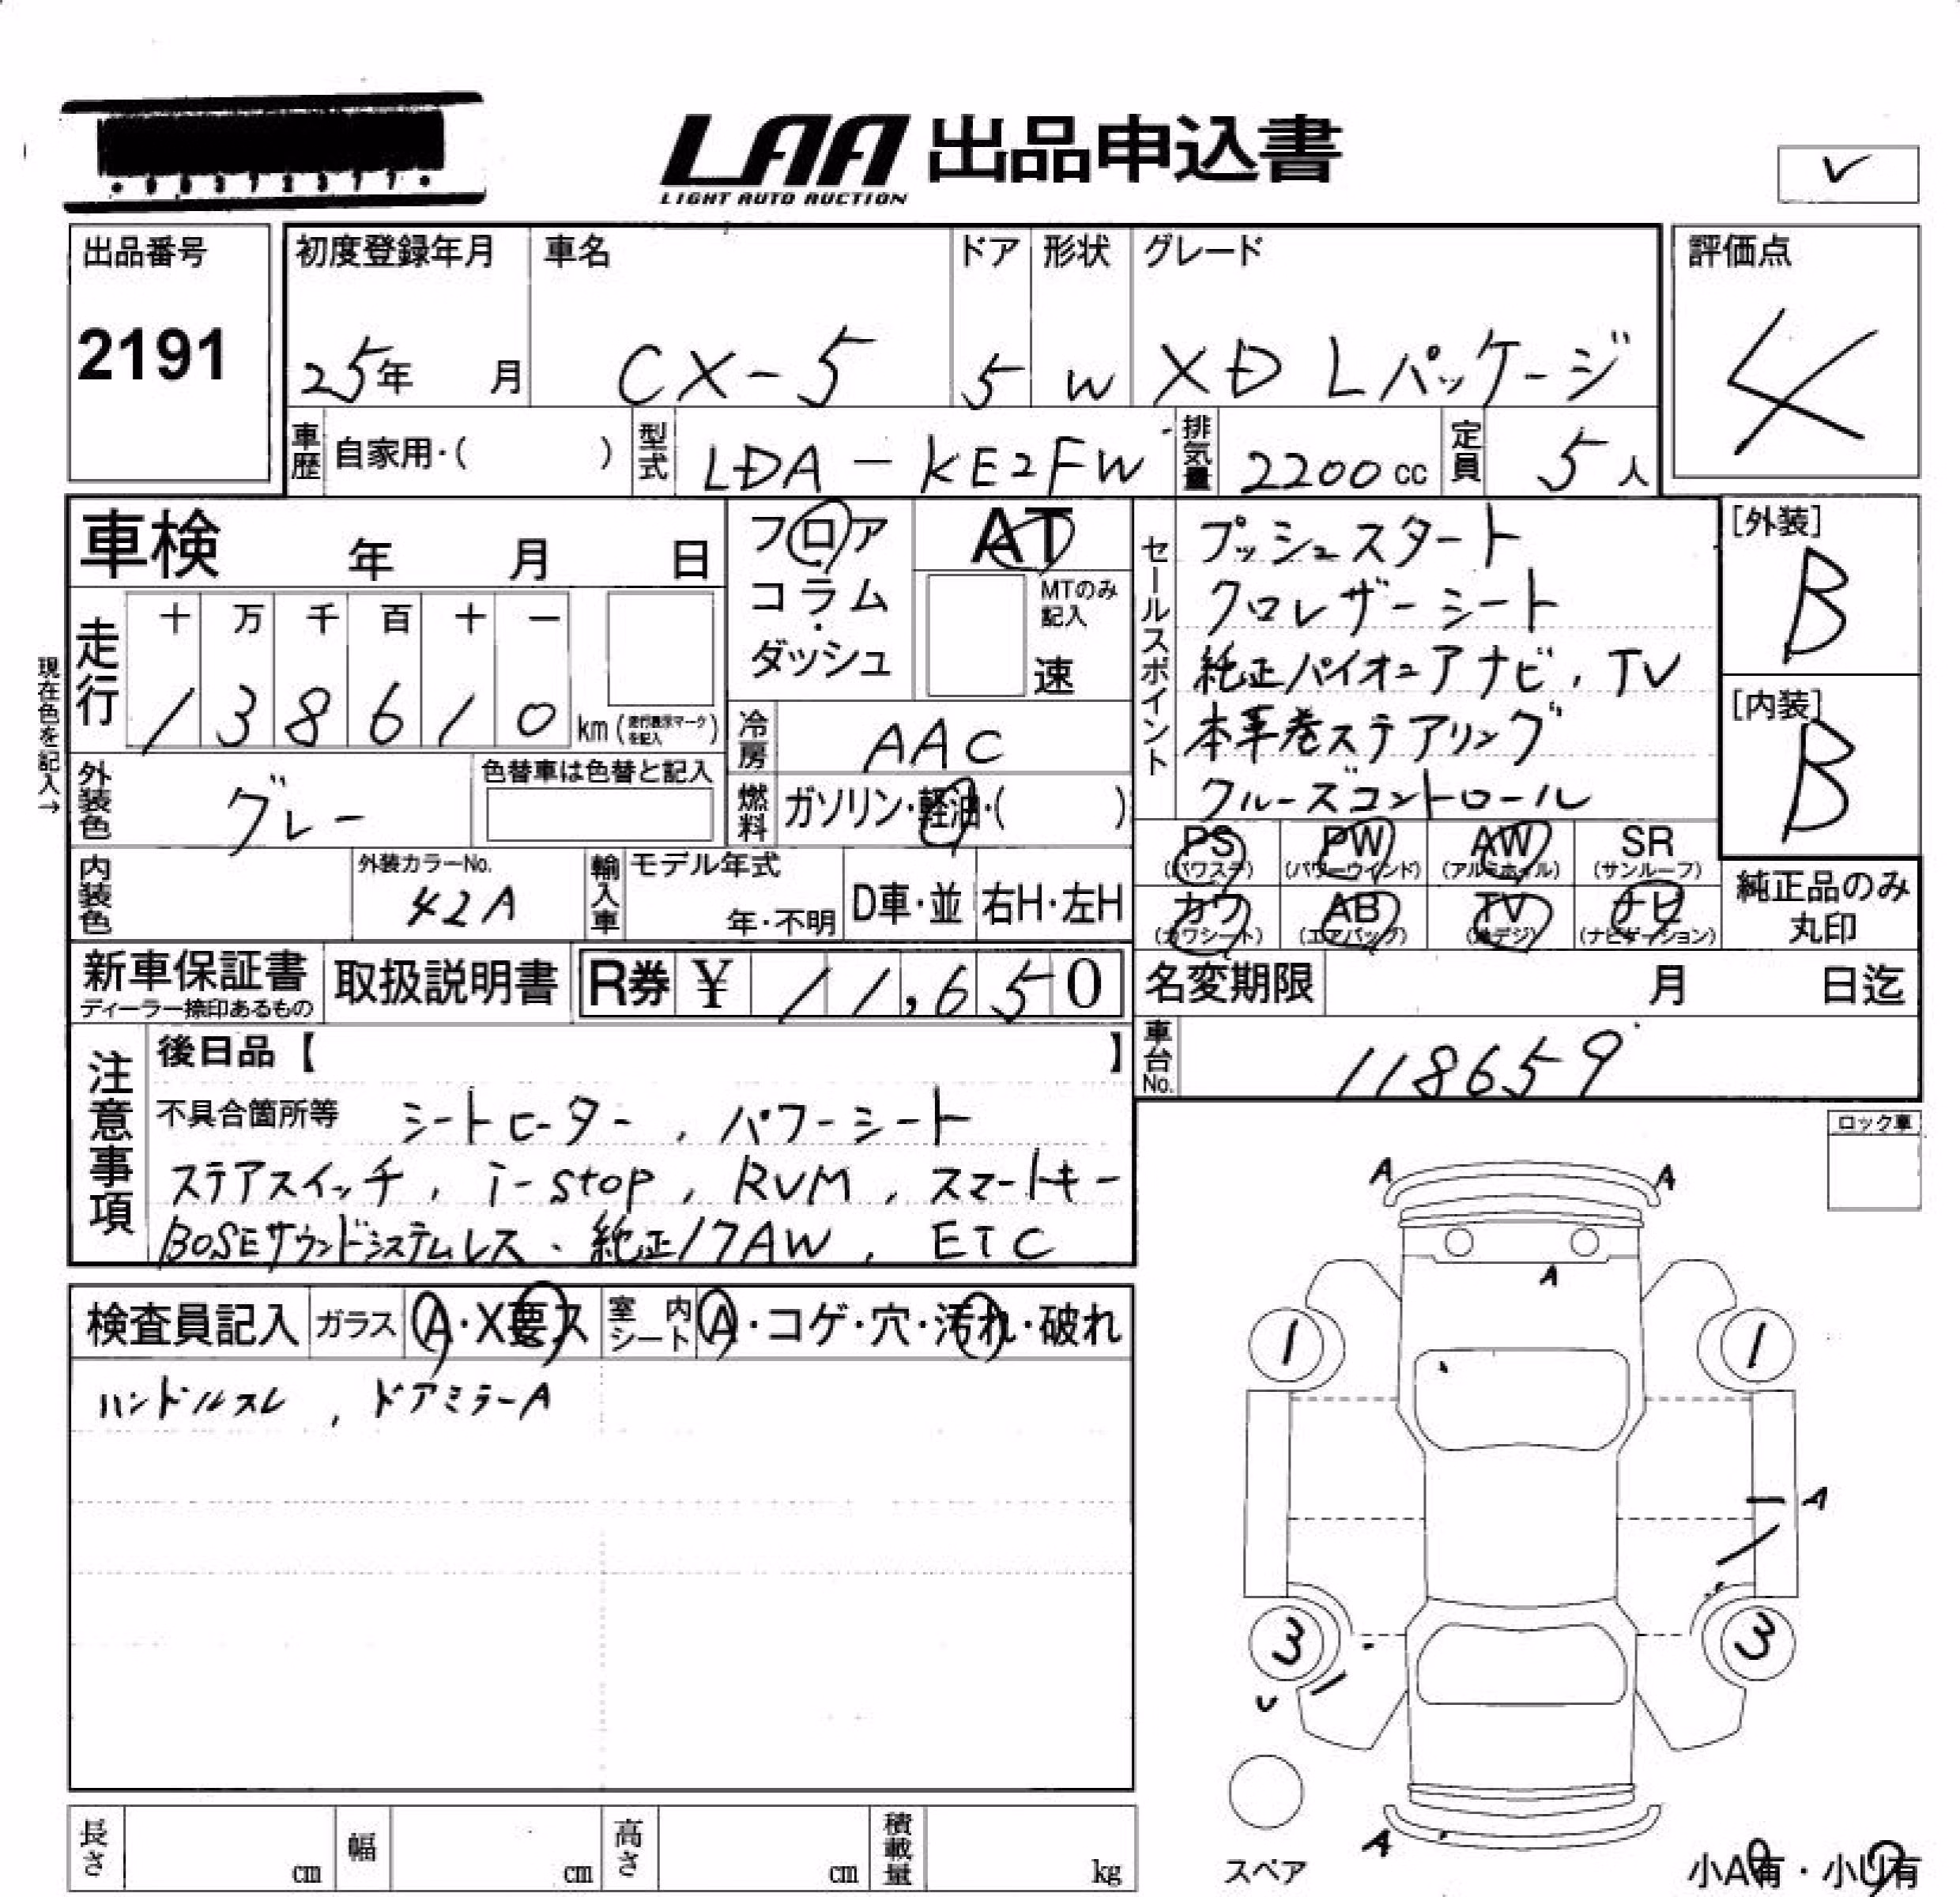 LAA 出品申込書
LIGHT AUTO AUCTION
出品番号
2191
初度登録年月
25年 月
車名
CX-5
ドア
5
形状
W
グレード
XD Lパッケージ
評価点
4
車歴 自家用・( )
型式 LDA-KE2FW
排気量 2200cc
定員 5人
車検 年 月 日
フロア
コラム
・
ダッシュ
AT
MTのみ記入
速
セールスポイント
プッシュスタート
クロレザーシート
純正パイオニアナビ、TV
本革巻ステアリング
クルーズコントロール
[外装]
B
[内装]
B
現在色を記入→
走行
十 万 千 百 十 一
1 3 8 6 1 0 km (走行表示マークを記入)
冷房 AAC
外装色 グレー
色替車は色替と記入
燃料 ガソリン・軽油・( )
PS (パワステ)
PW (パワーウインド)
AW (アルミホイル)
SR (サンルーフ)
カワ (カワシート)
AB (エアバッグ)
TV (地デジ)
ナビ (ナビゲーション)
純正品のみ
丸印
内装色
外装カラーNo.
42A
輸入車
モデル年式
年・不明
D車・並
右H・左H
新車保証書
ディーラー捺印あるもの
取扱説明書
R券 ¥ 11,650
名変期限 月 日迄
車台No. 118659
注意事項
後日品【 】
不具合箇所等 シートヒーター、パワーシート
ステアスイッチ、i-stop、RVM、スマートキー
BOSEサウンドシステムレス、純正17AW、ETC
ロック車
検査員記入
ガラス A・X要ス
室内シート A・コゲ・穴・汚れ・破れ
ハンドルスレ、ドアミラーA
A A
A
1 1
A
3 3
U
A
スペア
小A有・小U有
長さ cm
幅 cm
高さ cm
積載量 kg